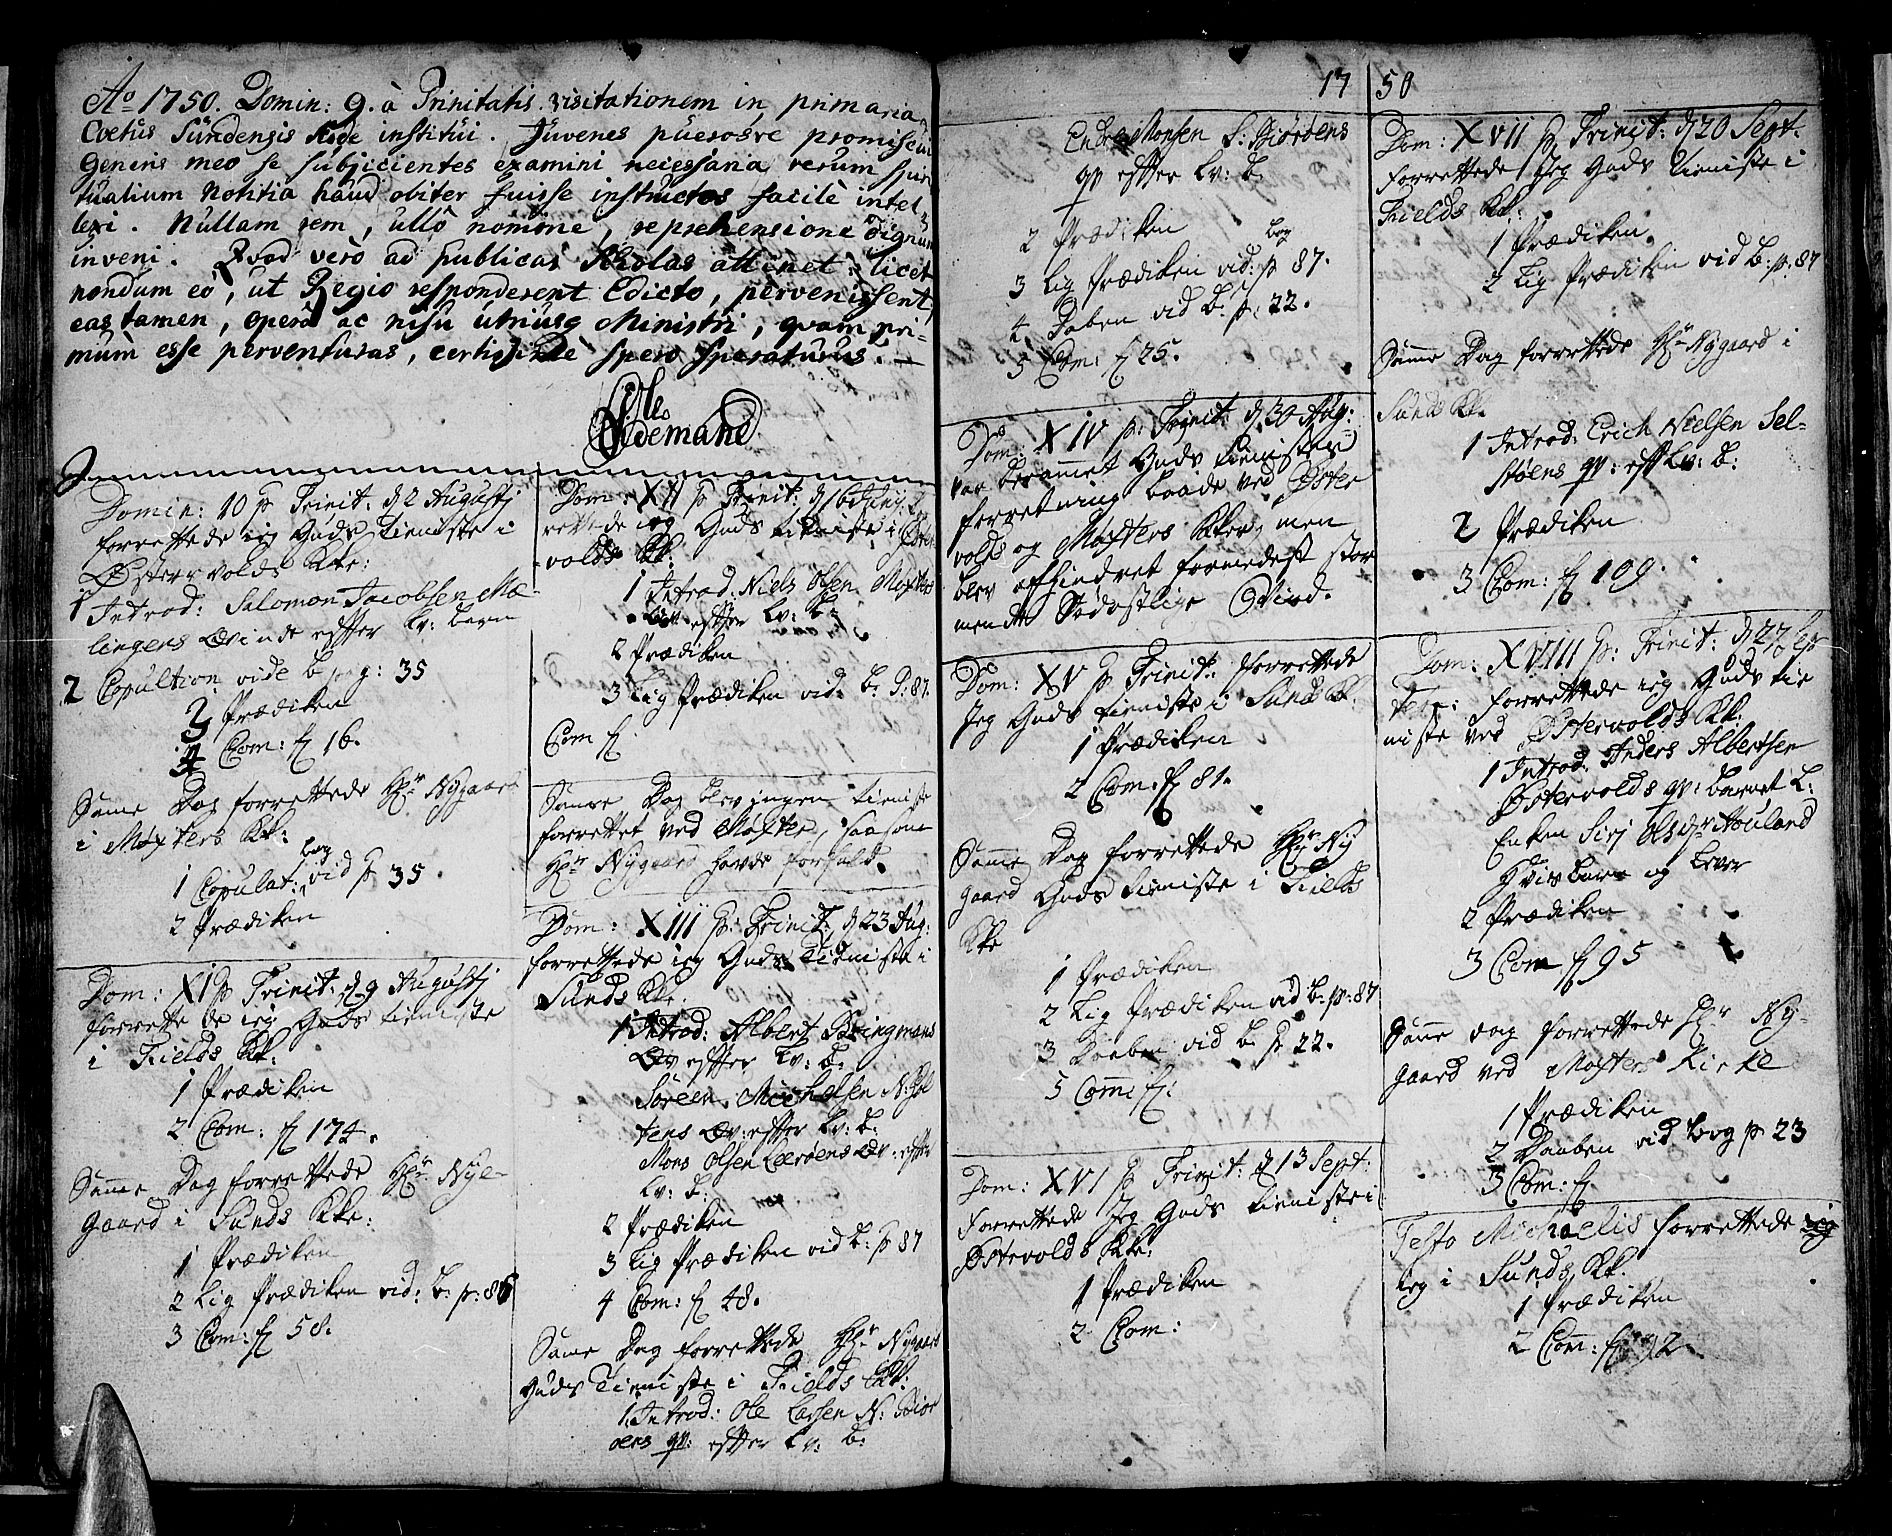 Aõ 1750. Domin: 9. à Trinitatis visitationem in primaria
Coetus Sundensis Æde institui. Juvenes puerosve promiscui
Generis meo se subjicientes examini necessaria rerum spiri
tualium Notitia haud obiter fuisse instructos facilè intel-
lexi. Nullam rem, ullô nomine, reprehensione dignam
inveni. Qvod verò ad publicas Skolas attinet: licet
nondum eò, ut Regio responderent Edicto, pervenissent,
eas tamen, operâ ac nisu utriusq Ministri, qvam pri-
mùm esse perventuras, certissimè spero speraturus. —
Ole
Tidemand
Domin: 10 p Trinit: d 2 Augustj
forrettede ieg Guds Tieniste i
Østervolds Kke:
1 Introd: Salomon Jacobsen Mæ-
lingens Qvinde effter Lv: barn
2 Copultion vide b pag: 35
3 Prædiken
4 Com: 16.
Samme Dag forrettede Hr Nygaard
i Møxters Kk:
1 Copulat: vid bog p 35.
2 Prædiken
Dom: XI p Trinit: d 9 Augustj
forrettede ieg Guds tieniste
i Fields Kk:
1 Prædiken
2 Com: 174.
Samme Dag forrettede Hr Nye-
gaard i Sunds Kke:
1 Prædiken
2 Lig Prædiken vid: b: p: 86
3 Com: 58.
Dom: XII p Trinit: d 16 Aug: for
rettede ieg Guds tieniste i Øster
volds Kk:
1 Introd: Niels Olsen Møxters
Qv effter Lv: b:
2 Prædiken
3 Lig Prædiken vid: b: p: 87.
Com
Samme Dag blev ingen tieniste
forrettet ved Møxter, saasom
Hr Nygaard havde forfald.
Dom: XIII p: Trinit: d 23 Aug:
forrettede ieg Guds Tieniste i
Sunds Kke.
1 Introd: Albert Bringmans
Qv effter Lv: b:
Søren Michelsen N: Hol
tens Qv: effter Lv: b:
Mons Olsen Leerøens Qv: effter
Lv: b:
2 Prædiken
3 Lig Prædiken vid b: p 87
4 Com: 48.
Samme Dag forrettede Hr Nygaard
Guds Tieniste i Fields Kk:
1. Introd: Ole Larsen N: Biør
øens qv: effter Lv: b:
1750
Endre Monsen S: Biørøens
qv effter Lv: b.
2 Prædiken
3 Lig Prædiken vid: bog p 87.
4. Daben vid b: p: 22.
5 Com: 25.
Dom: XIV p: Trinit: d 30 Aug:
var berammet Guds tienistes
forretning baade ved Øster
volds og Møxters Kker, men
blev afhindret formedelst stor
mende Sydostlige Vind.
Dom: XV p Trinit: forrettede
Jeg Guds tieniste i Sunds Kk.
1 Prædiken
2 Com: 81.
Samme Dag forrettede Hr Ny
gaard Guds tieniste i Fields
Kke
1 Prædiken
2 Lig Prædiken vid b: p: 87
3 Daaben vid b. p 22.
5 Com:
Dom: XVI p Trinit: d 13 Sept:
forrettede Jeg Guds tieniste i
Østevolds Kke:
1 Prædiken
2 Com:
Dom: XVII p Trinit: d 20 Sept.
forrettede Jeg Guds tieniste i
Fields Kk:
1 Prædiken
2 Lig Prædiken vid b: p: 87
Samme Dag forrettede Hr Nygaard i
Sunds Kk.
1 Introd: Erich Nielsen Sel-
støens qv: eff Lv: b:
2 Prædiken
3 Com: 109.
Dom: XVIII p: Trinit: d 27 Sep
tem: forrettede ieg Guds tie
niste ved Østervolds Kk:
1 Introd: Anders Albertsen
Østervolds qv: barnet L:
Enken Sirj Olsdr Houland
hvis barn og lever
2 Prædiken
3 Com 95
Samme dag forrettede Hr Ny-
gaard ved Møxters Kirke
1 Prædiken
2 Daaben vid bog p 23
3 Com:
Festo Michaelis forrettede
ieg i Sunds Kk.
1 Prædiken
2 Com: 92